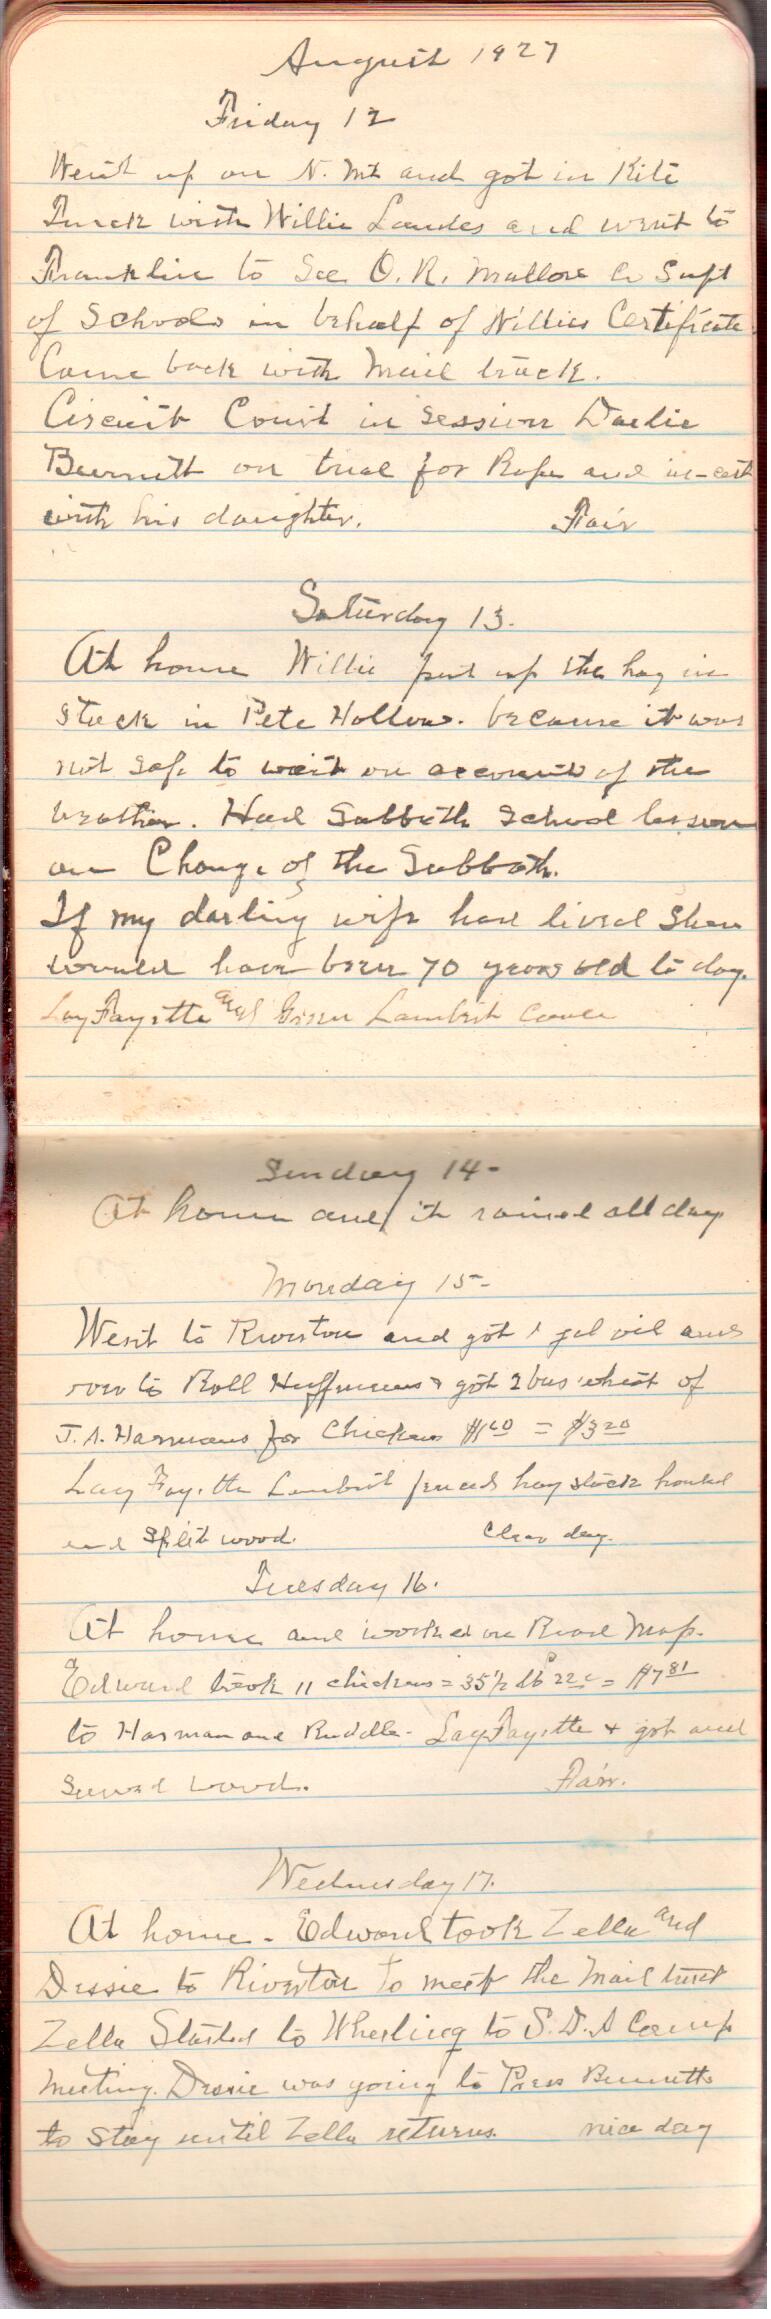 August 1927
Friday 12
Went up on N. Mt and got in Kite
Truck with Willie Landes and went to
Franklin to See O. R. Mallow Co Supt
of Schools in behalf of Willies Certificate
Came back with Mail truck.
Circuit Court in Session
Bennett on trial for Rape and in-cest
with his daughter. Fair
Saturday 13.
At home Willie put up the hay in
stack in Pete Hollow. because it was
not safe to wait on account of the
weather. Had Sabbath School lesson
on Change of the Sabbath.
If my darling wife had lived Shee
would have been 70 years old to day.
LayFayette and Green Lambert came
Sunday 14-
At home and it rained all day
Monday 15-
Went to Riverton and got 1 gal oil and
to Roll Huffmans & got 2 bus wheat of
J. A. Harmans for Chickens $1.60 = $3.20
Lay Fayette Lambert fenced hay stack hauled
and Split wood. Clear day.
Tuesday 16.
At home and worked on Road Map.
Edward took 11 chickens = 35½ lb @ 22c = $7.81
to Harman and Ruddle- LayFayette + got and
Sawed wood. Fair.
Wednesday 17.
At home - Edward took Zella and
Dessie to Riverton to meet the Mail truck
Zella Started to Wheeling to S.D.A Camp
Meeting. Dessie was going to Press Bennetts
to stay until Zella returns. nice day